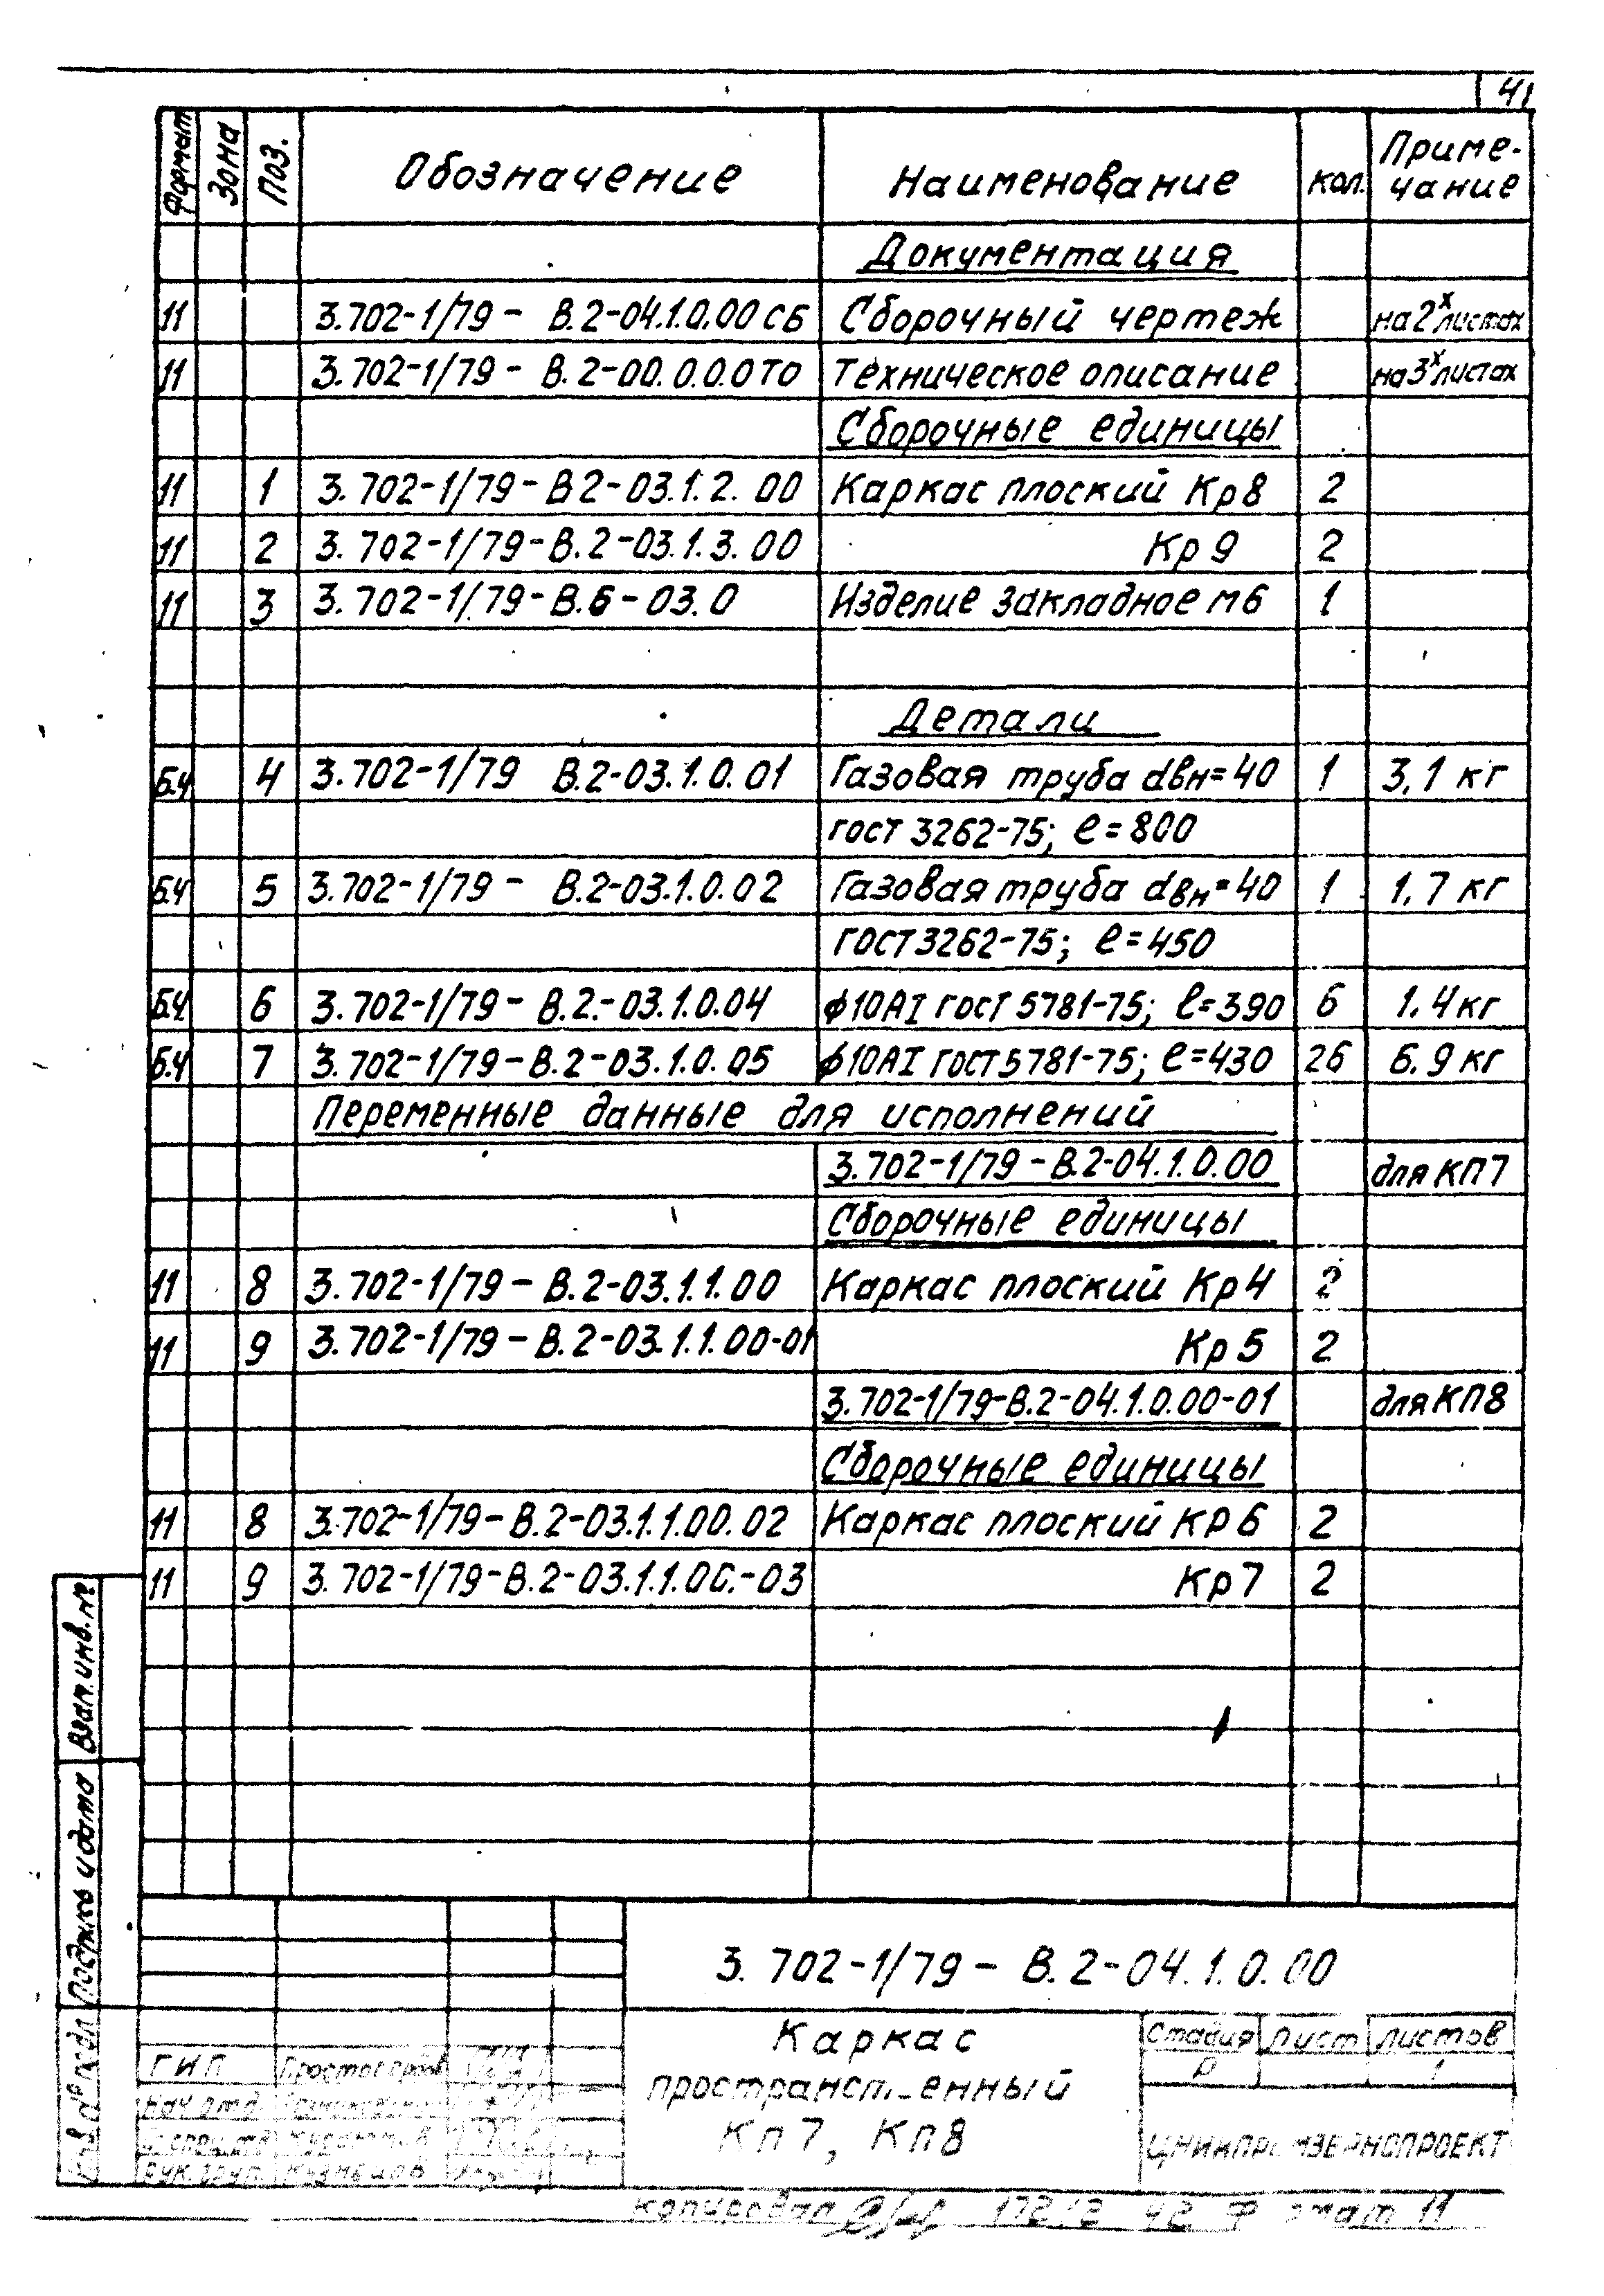 41
Формат Зона Поз. Обозначение Наименование кол. Приме-
чание
Документация
11 3.702-1/79 - В.2-04.1.0.00 СБ Сборочный чертеж на 2х листах
11 3.702-1/79 - В.2-00.0.0.0ТО Техническое описание на 3х листах
Сборочные единицы
11 1 3.702-1/79-В2-03.1.2.00 Каркас плоский Кр8 2
11 2 3.702-1/79-В.2-03.1.3.00 Кр9 2
11 3 3.702-1/79-В.6-03.0 Изделие закладное м6 1
Детали
Б.Ч 4 3.702-1/79 В.2-03.1.0.01 Газовая труба dвн=40 1 3,1 кг
ГОСТ 3262-75; ℓ=800
Б.Ч 5 3.702-1/79 - В.2-03.1.0.02 Газовая труба dвн=40 1 1,7 кг
ГОСТ 3262-75; ℓ=450
Б.Ч 6 3.702-1/79 - В.2.-03.1.0.04 ф10АI ГОСТ 5781-75; ℓ=390 6 1.4 кг
Б.Ч 7 3.702-1/79-В.2-03.1.0.05 ф10АI ГОСТ 5781-75; ℓ=430 26 6.9 кг
Переменные данные для исполнений
3.702-1/79-В.2-04.1.0.00 для КП7
Сборочные единицы
11 8 3.702-1/79-В.2-03.1.1.00 Каркас плоский Кр4 2
11 9 3.702-1/79-В.2-03.1.1.00-01 Кр5 2
3.702-1/79-В.2-04.1.0.00-01 для КП8
Сборочные единицы
11 8 3.702-1/79-В.2-03.1.1.00.02 Каркас плоский Кр6 2
11 9 3.702-1/79-В.2-03.1.1.00.-03 Кр7 2
Взам.инв.№
Подпись и дата
3.702-1/79- В.2-04.1.0.00
Каркас
пространственный
Кп7, Кп8
Стадия Лист Листов
Р 1
ЦНИИПРОМЗЕРНОПРОЕКТ
ГИП
Нач.отд.
Рук.груп. Кузнецов
Копировал 42 Формат 11